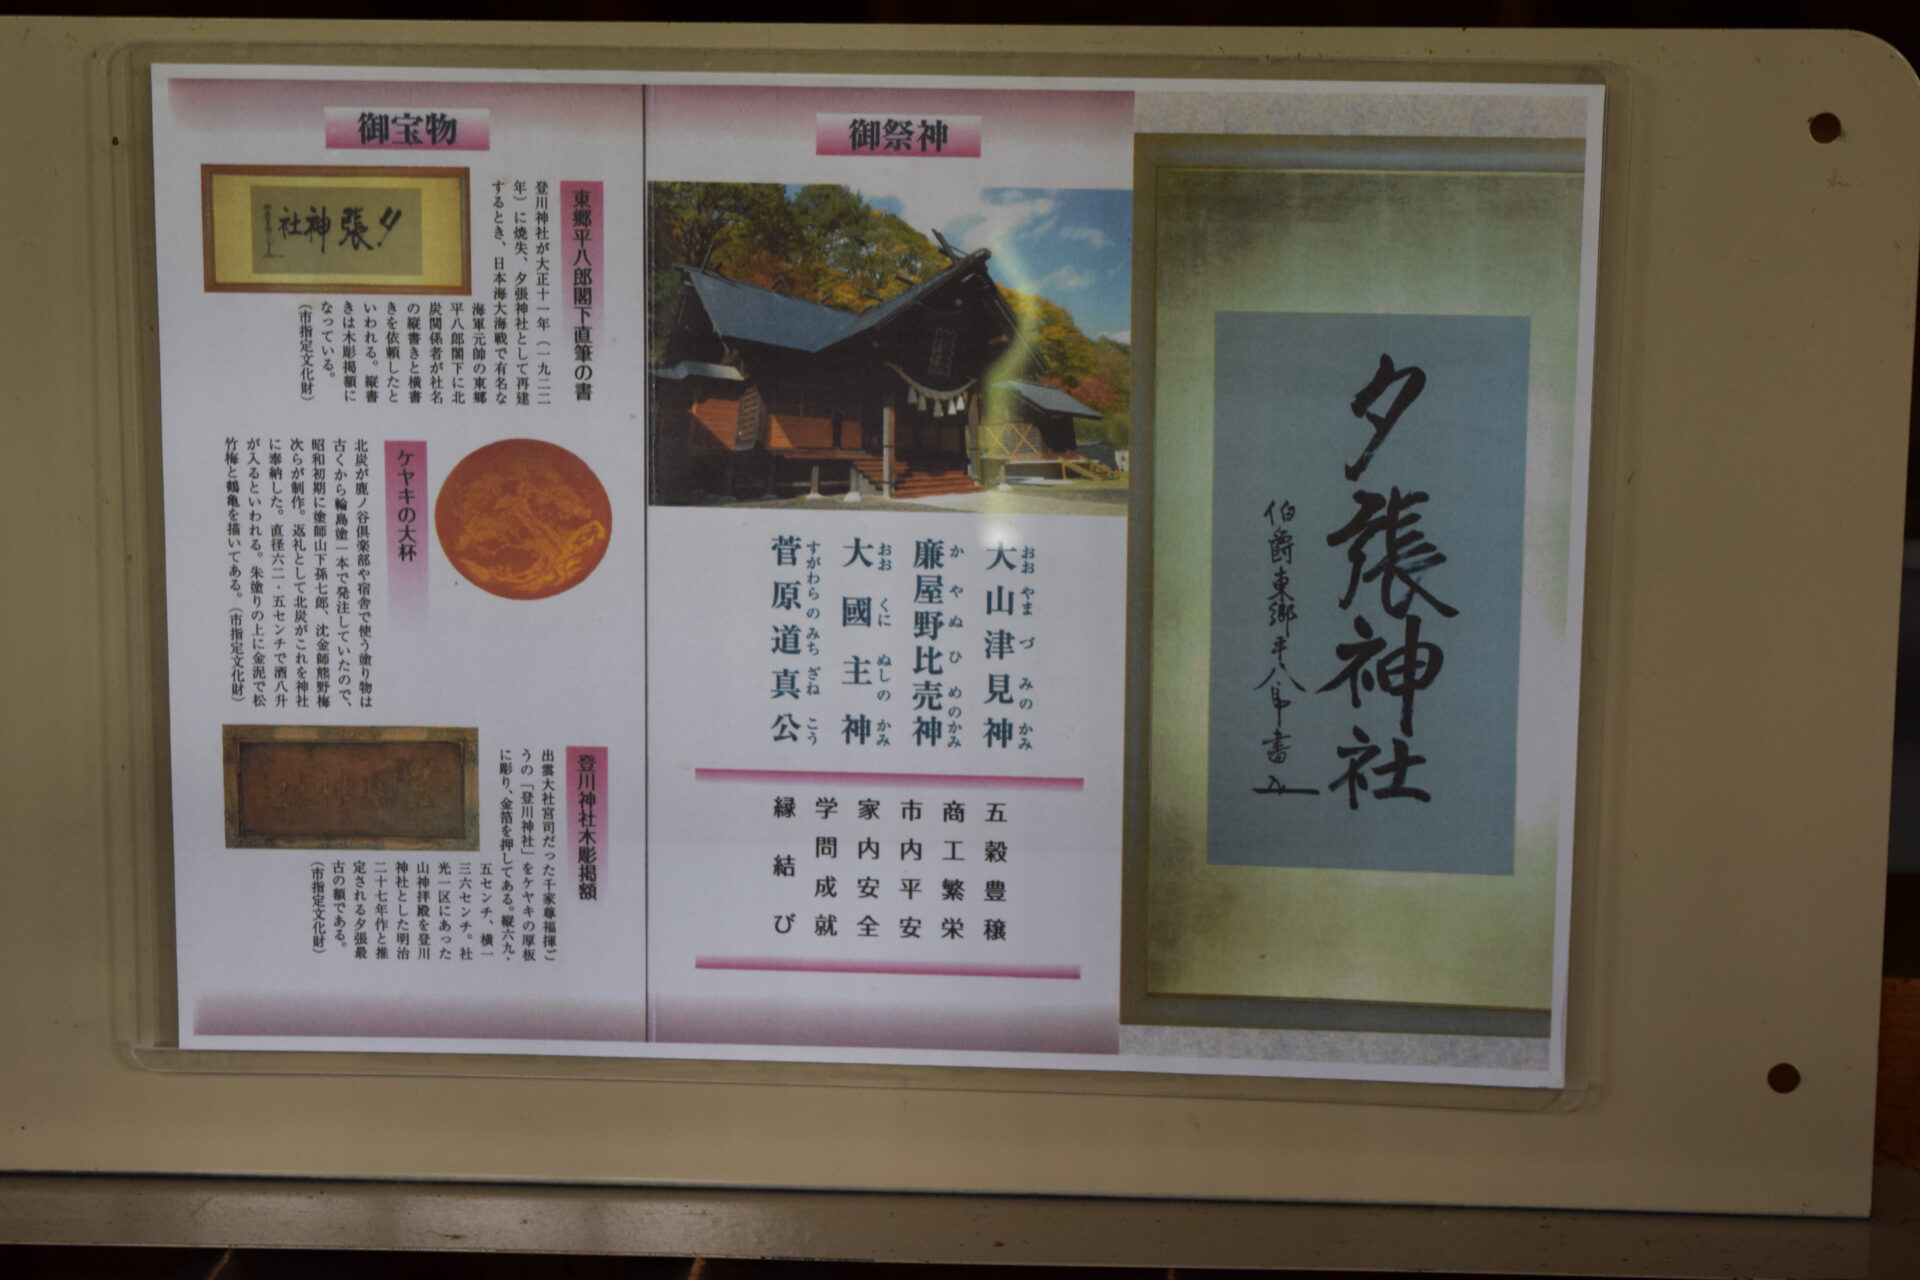 夕張神社
伯爵東郷平八郎書
御祭神
大山津見神
おおやまづみのかみ
廉屋野比売神
かやぬひめのかみ
大國主神
おおくにぬしのかみ
菅原道真公
すがわらのみちざねこう
五穀豊穣
商工繁栄
市内平安
家内安全
学問成就
縁結び
御宝物
東郷平八郎閣下直筆の書
登川神社が大正十一年(一九二二
年)に焼失、夕張神社として再建
するとき、日本海大海戦で有名な
海軍元帥の東郷
平八郎閣下に北
炭関係者が社名
の縦書きと横書
きを依頼したと
いわれる。縦書
きは木彫掲額に
なっている。
(市指定文化財)
夕張神社
ケヤキの大杯
北炭が鹿ノ谷倶楽部や宿舎で使う塗り物は
古くから輪島塗一本で発注していたので、
昭和初期に塗師山下孫七郎、沈金師熊野梅
次らが制作。返礼として北炭がこれを神社
に奉納した。直径六二・五センチで酒八升
が入るといわれる。朱塗りの上に金泥で松
竹梅と鶴亀を描いてある。(市指定文化財)
登川神社木彫掲額
出雲大社宮司だった千家尊福揮ご
うの「登川神社」をケヤキの厚板
に彫り、金箔を押してある。縦六九・
五センチ、横一
三六センチ。社
光一区にあった
山神拝殿を登川
神社とした明治
二十七年作と推
定される夕張最
古の額である。
(市指定文化財)